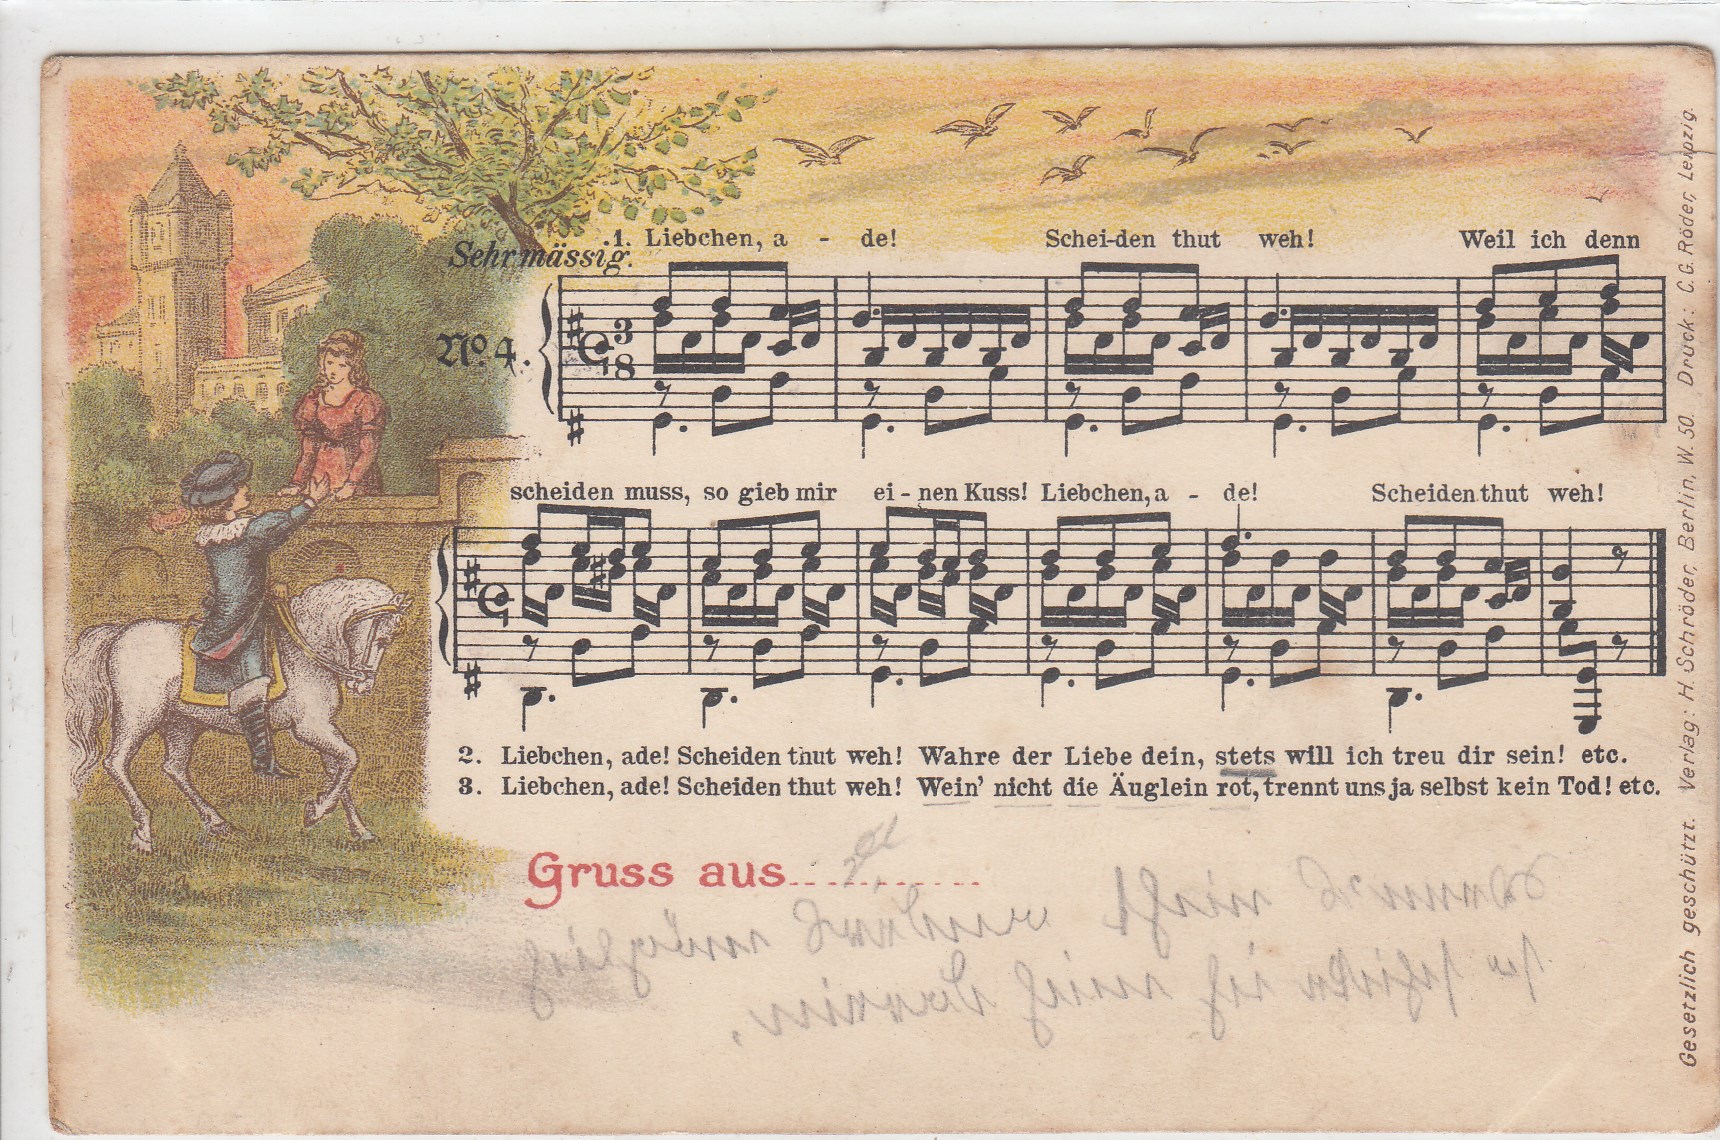 1. Liebchen, a - de! Schei-den thut weh! Weil ich denn
Sehr mässig.
No. 4.
3
8
scheiden muss, so gieb mir ei - nen Kuss! Liebchen, a - de! Scheiden thut weh!
2. Liebchen, ade! Scheiden thut weh! Wahre der Liebe dein, stets will ich treu dir sein! etc.
3. Liebchen, ade! Scheiden thut weh! Wein' nicht die Äuglein rot, trennt uns ja selbst kein Tod! etc.
Gruss aus
nicht
ich mich
Gesetzlich geschützt. Verlag: H. Schröder, Berlin, W. 50. Druck: C. G. Röder, Leipzig.